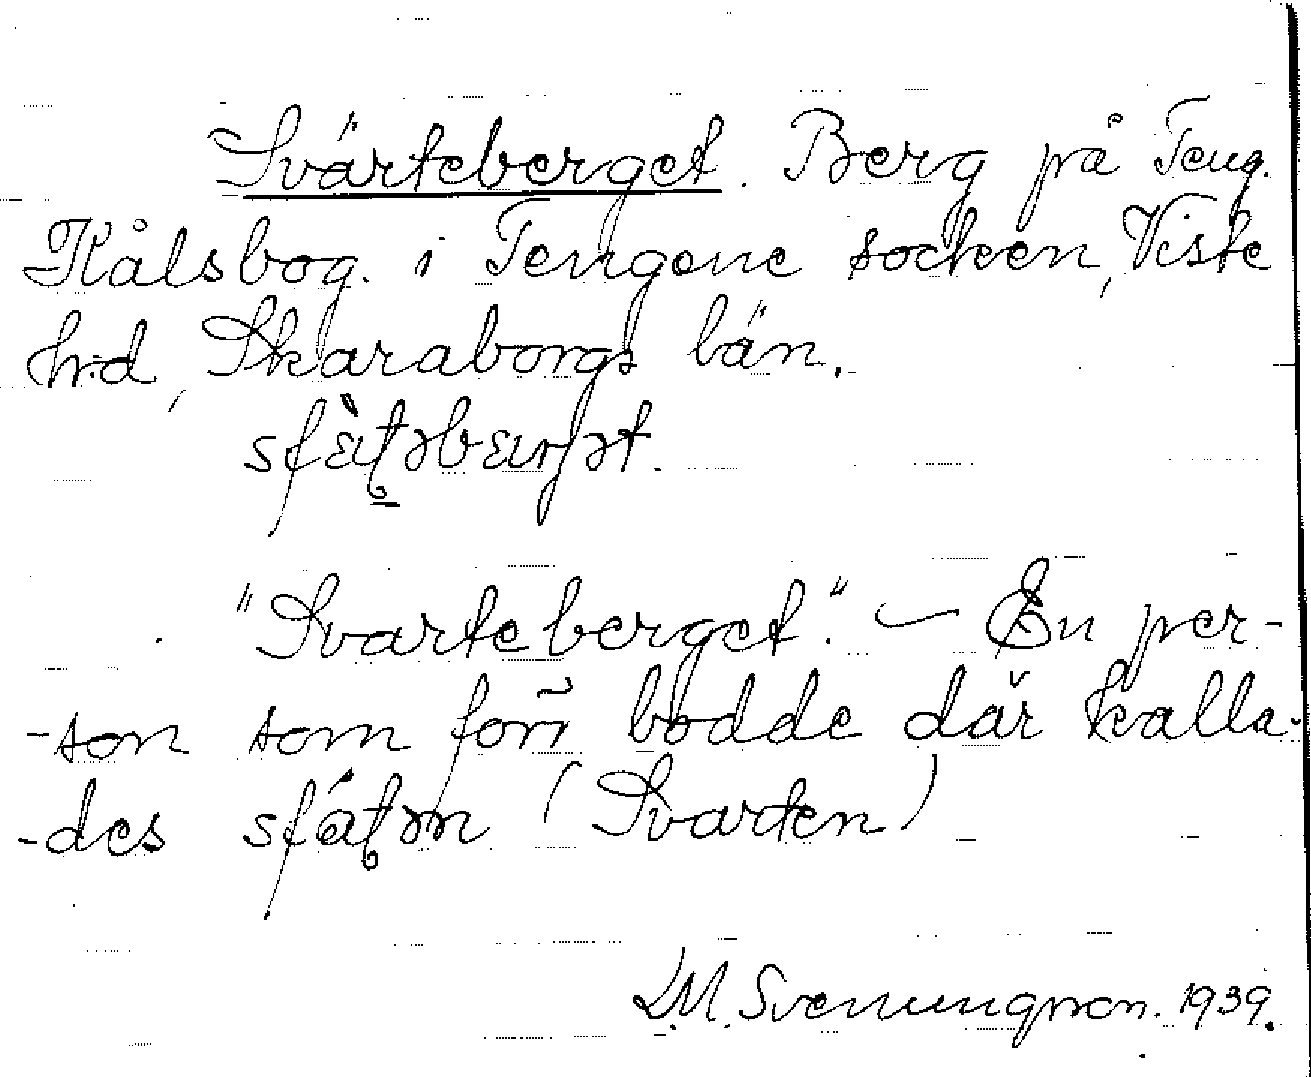 Svärteberget. Berg på Teng.
Kålsbog. i Tengene socken, Viste
hd, Skaraborgs län.
"Svarteberget". – En per-
-son som förr bodde där kalla-
-des (Svarten)
L.M. Svenungsson. 1939.